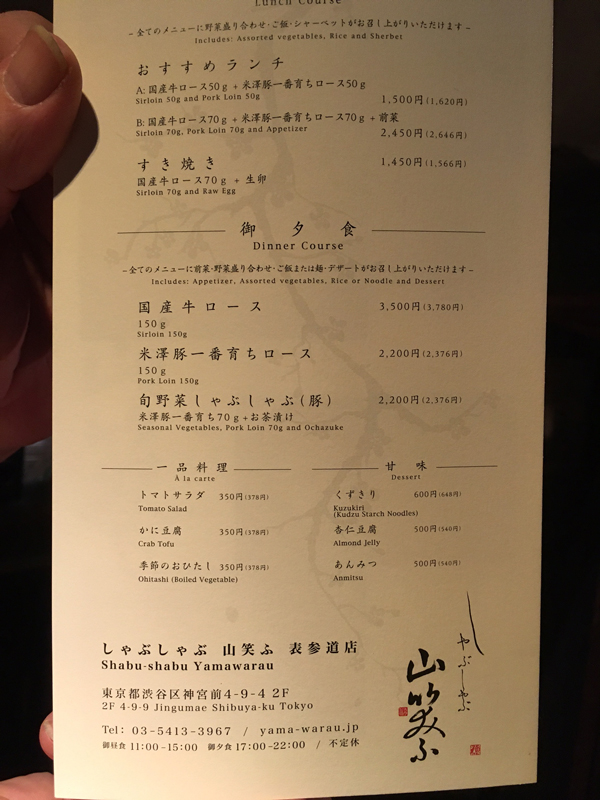 Lunch Course
~全てのメニューに野菜盛り合わせ・ご飯・シャーベットがお召し上がりいただけます~
Includes: Assorted vegetables, Rice and Sherbet
おすすめランチ
A: 国産牛ロース50g + 米澤豚一番育ちロース50g
Sirloin 50g and Pork Loin 50g
1,500円(1,620円)
B: 国産牛ロース70g + 米澤豚一番育ちロース70g + 前菜
Sirloin 70g, Pork Loin 70g and Appetizer
2,450円(2,646円)
すき焼き 1,450円(1,566円)
国産牛ロース70g + 生卵
Sirloin 70g and Raw Egg
御夕食
Dinner Course
~全てのメニューに前菜・野菜盛り合わせ・ご飯または麺・デザートがお召し上がりいただけます~
Includes: Appetizer, Assorted vegetables, Rice or Noodle and Dessert
国産牛ロース 3,500円(3,780円)
150g
Sirloin 150g
米澤豚一番育ちロース 2,200円(2,376円)
150g
Pork Loin 150g
旬野菜しゃぶしゃぶ(豚) 2,200円(2,376円)
米澤豚一番育ち70g+お茶漬け
Seasonal Vegetables, Pork Loin 70g and Ochazuke
一品料理
À la carte
トマトサラダ 350円(378円)
Tomato Salad
かに豆腐 350円(378円)
Crab Tofu
季節のおひたし 350円(378円)
Ohitashi (Boiled Vegetable)
甘味
Dessert
くずきり 600円(648円)
Kuzukiri
(Kudzu Starch Noodles)
杏仁豆腐 500円(540円)
Almond Jelly
あんみつ 500円(540円)
Anmitsu
しゃぶしゃぶ 山笑ふ 表参道店
Shabu-shabu Yamawarau
東京都渋谷区神宮前4-9-4 2F
2F 4-9-9 Jingumae Shibuya-ku Tokyo
Tel: 03-5413-3967 / yama-warau.jp
御昼食 11:00-15:00 御夕食 17:00-22:00 / 不定休
しゃぶしゃぶ
山笑ふ